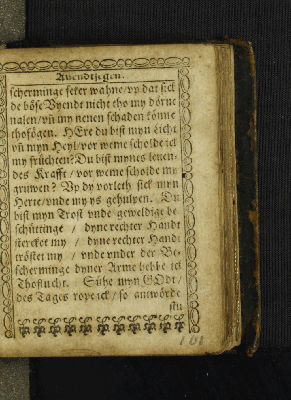 Auendtsegen.
scherminge seker wahne/vp dat sick
de böse Vyendt nicht tho my dörne
nalen/vñ my nenen schaden könne
thofögen. HEre du bist myn Licht
vñ myn Heyl/vor weme scholde ick
my früchten? Du bist mynes leuen-
des Krafft / vor weme scholde my
gruwen? Vp dy vorleth sick myn
Herte/vnde my ys gehulpen. Du
bist myn Trost vnde geweldige be-
schüttinge / dyne rechter Handt
stercket my / dyne rechter Handt
tröstet my / vnde vnder der Be-
scherminge dyner Arme hebbe ick
Thoflucht. Sühe myn GOdt/
des Tages rope ick / so antwörde
stu
101